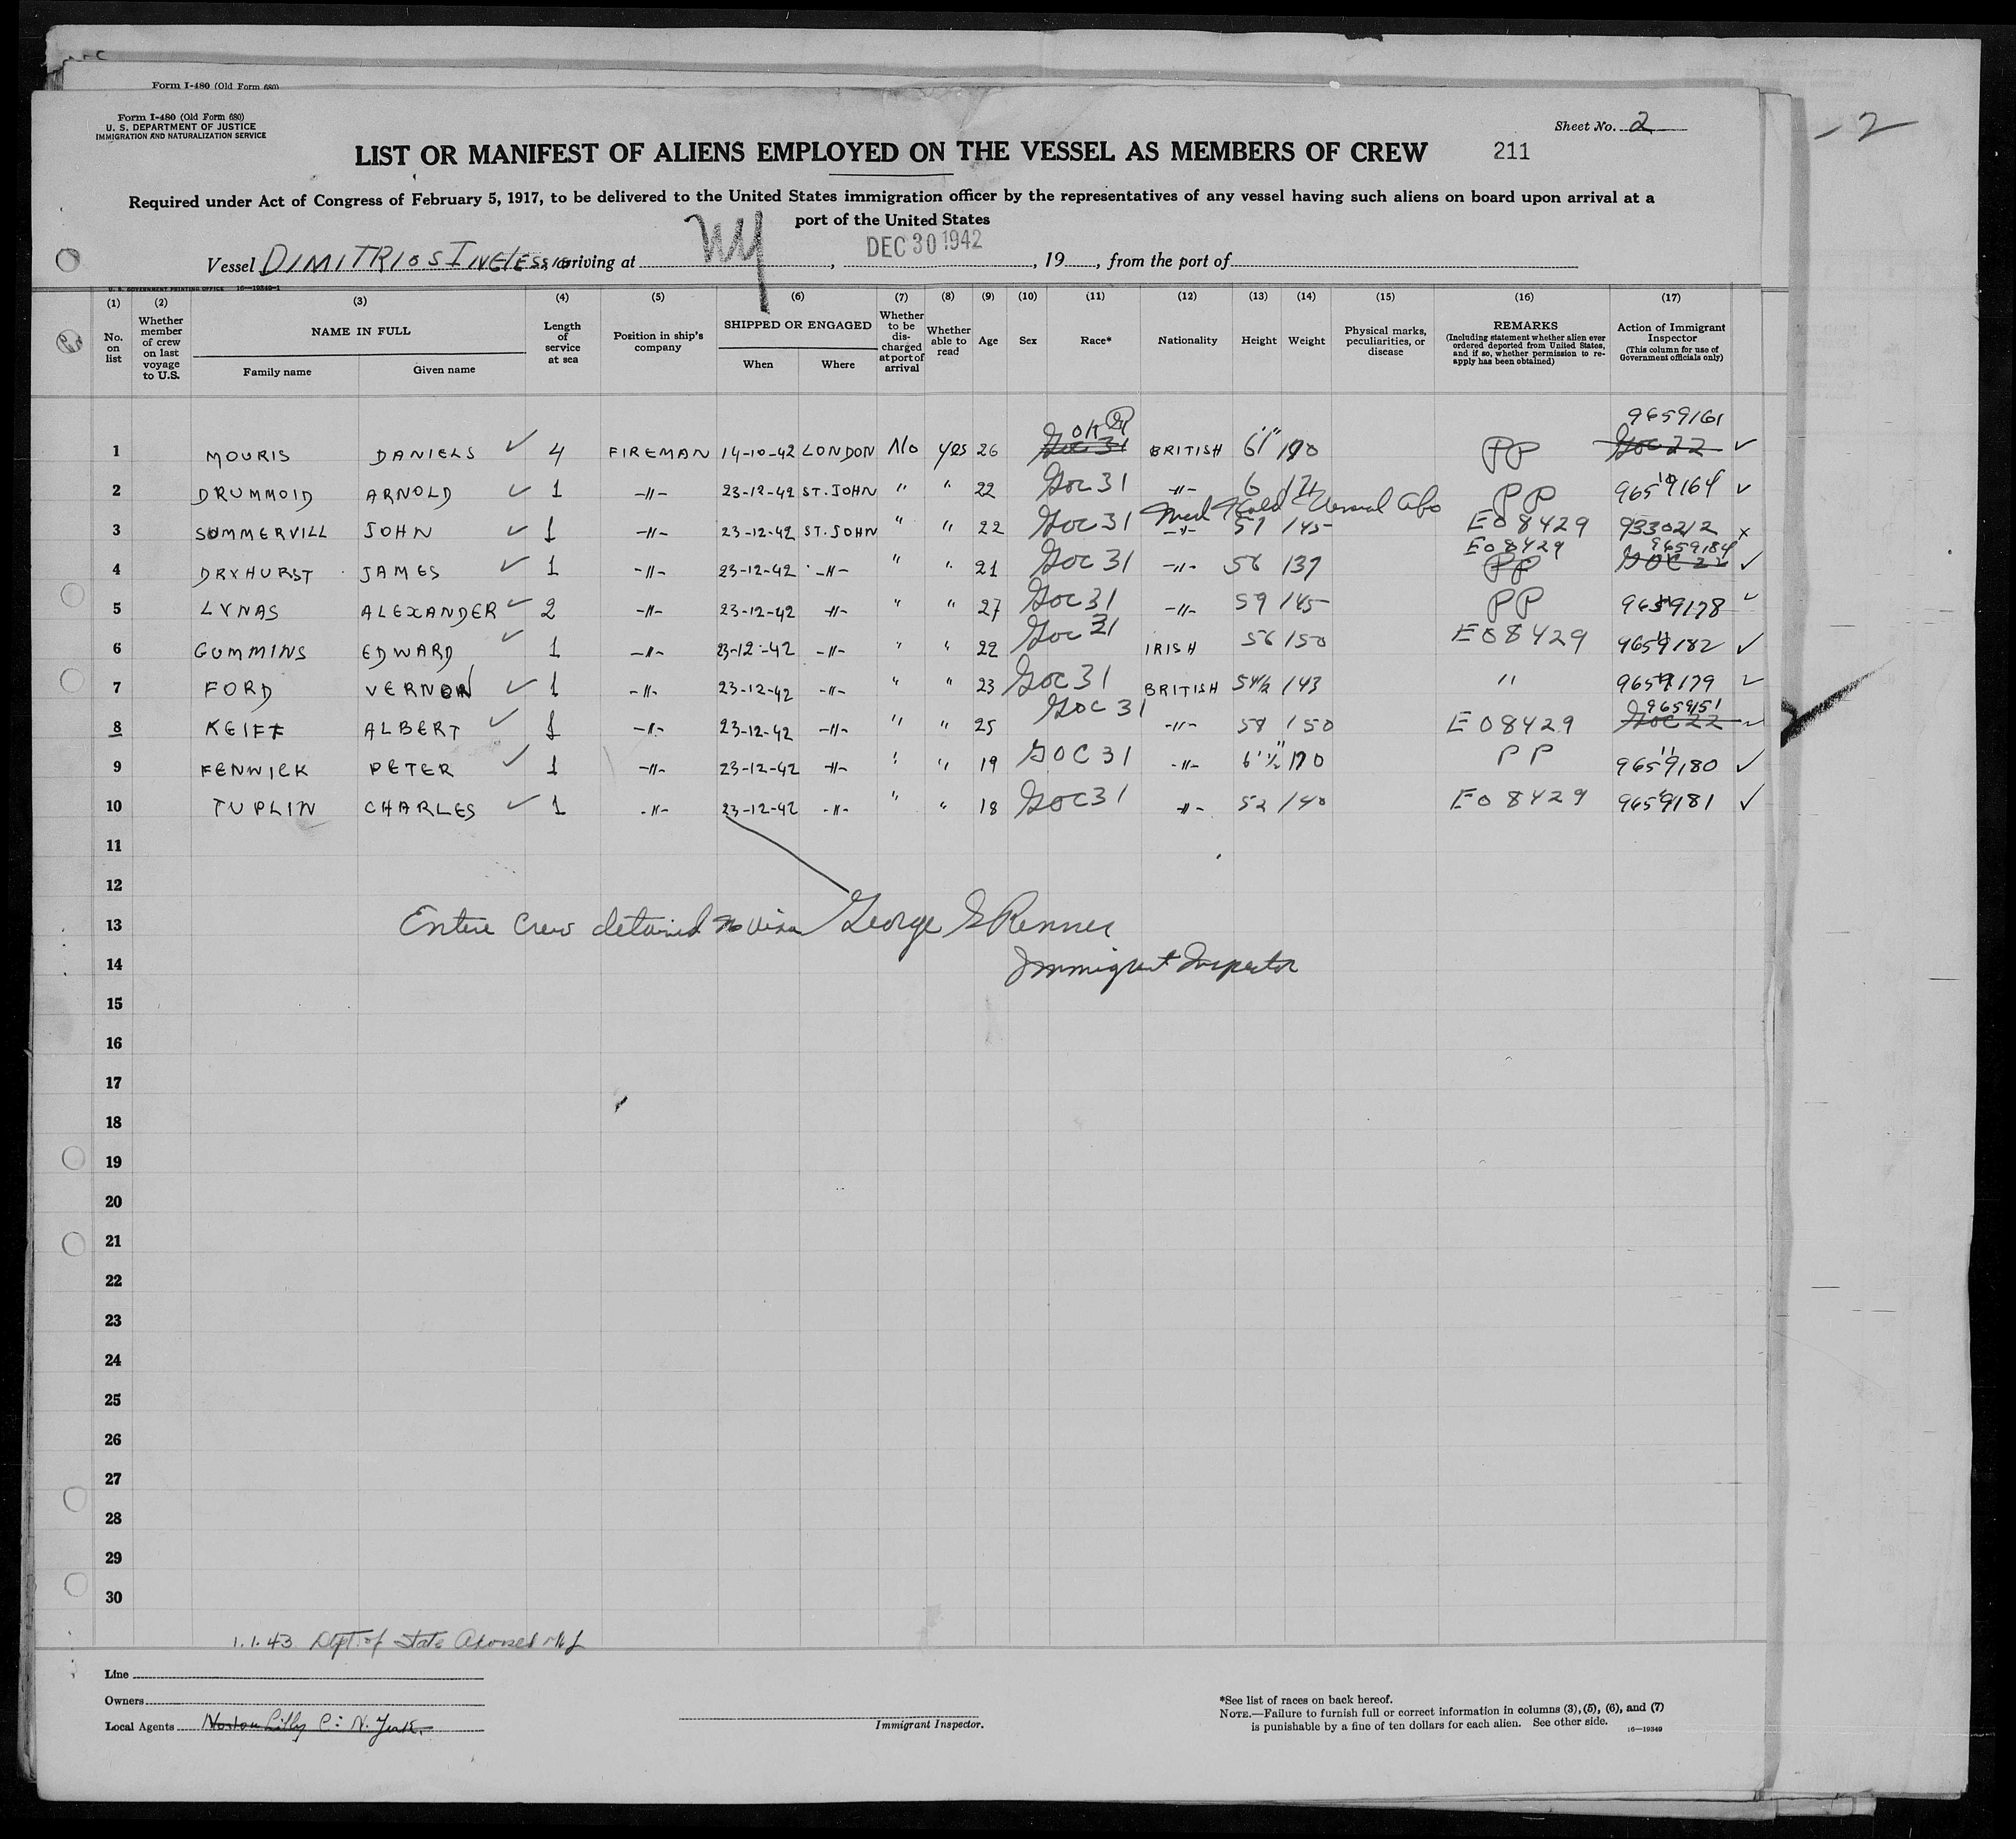 Form I-480 (Old Form 680)
Form I-480 (Old Form 680)
U. S. DEPARTMENT OF JUSTICE
IMMIGRATION AND NATURALIZATION SERVICE
Sheet No. 2
- 2
LIST OR MANIFEST OF ALIENS EMPLOYED ON THE VESSEL AS MEMBERS OF CREW 211
Required under Act of Congress of February 5, 1917, to be delivered to the United States immigration officer by the representatives of any vessel having such aliens on board upon arrival at a
port of the United States
Vessel DIMITRIOS INGLESSIS arriving at NY, DEC 30 1942, 19, from the port of
U. S. GOVERNMENT PRINTING OFFICE 16—19349-1
(1) (2) (3) (4) (5) (6) (7) (8) (9) (10) (11) (12) (13) (14) (15) (16) (17)
No. on list
Whether member of crew on last voyage to U.S.
NAME IN FULL
Family name Given name
Length of service at sea
Position in ship's company
SHIPPED OR ENGAGED
When Where
Whether to be discharged at port of arrival
Whether able to read
Age Sex Race* Nationality Height Weight
Physical marks, peculiarities, or disease
REMARKS
(Including statement whether alien ever ordered deported from United States, and if so, whether permission to reapply has been obtained)
Action of Immigrant Inspector
(This column for use of Government officials only)
OK 9659161
1 MOURIS DANIELS ✓ 4 FIREMAN 14-10-42 LONDON No yes 26 Goc 31 BRITISH 6'1" 190 PP Goc 22 ✓
2 DRUMMOID ARNOLD ✓ 1 -"- 23-12-42 ST. JOHN " " 22 Goc 31 -"- 6 PP 9659164 ✓
3 SOMMERVILL JOHN ✓ 1 -"- 23-12-42 ST. JOHN " " 22 Goc 31 -"- 57 145 E08429 9330212 x
Med Hold Venereal Also
E08429 9659184
4 DRXHURST JAMES ✓ 1 -"- 23-12-42 -"- " " 21 Goc 31 -"- 58 137 PP Goc 22 ✓
5 LYNAS ALEXANDER ✓ 2 -"- 23-12-42 -"- " " 27 Goc 31 -"- 59 145 PP 9659178 ✓
6 GUMMINS EDWARD ✓ 1 -"- 23-12-42 -"- " " 22 Goc 31 IRISH 56 150 E08429 9659182 ✓
7 FORD VERNON ✓ 1 -"- 23-12-42 -"- " " 23 Goc 31 BRITISH 54½ 143 " 9659179 ✓
9659151
8 KEIFF ALBERT ✓ 1 -"- 23-12-42 -"- " " 25 Goc 31 -"- 58 150 E08429 Goc 22 ✓
9 FENWICK PETER ✓ 1 -"- 23-12-42 -"- " " 19 GOC 31 -"- 6'½" 170 PP 9659180 ✓
10 TUPLIN CHARLES ✓ 1 -"- 23-12-42 -"- " " 18 Goc 31 -"- 52 140 E08429 9659181 ✓
11
12
13 Entire Crew detained no visa George G Renner
14 Immigrant Inspector
15
16
17
18
19
20
21
22
23
24
25
26
27
28
29
30
1.1.43 Dept. of State Advised
Line
Owners
Local Agents Norton Lilly Co: N. York.
Immigrant Inspector.
*See list of races on back hereof.
NOTE.—Failure to furnish full or correct information in columns (3), (5), (6), and (7)
is punishable by a fine of ten dollars for each alien. See other side. 16—19349